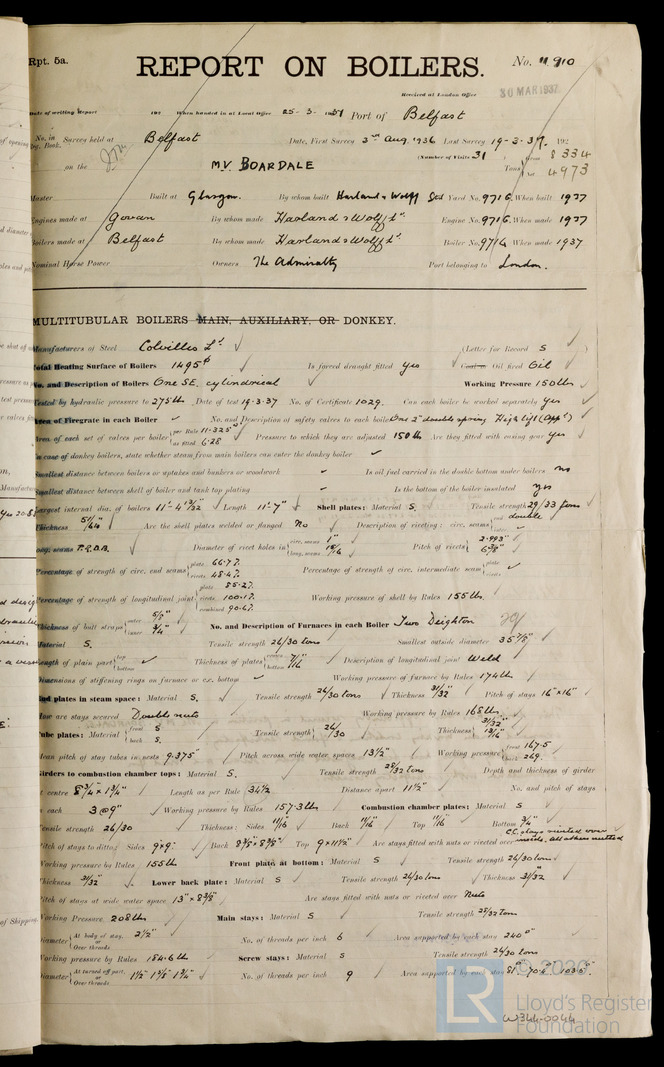 Rpt. 5a.
REPORT ON BOILERS.
No. 11,910
Received at London Office
30 MAR 1937
Date of writing Report 192 When handed in at Local Office 25-3-1937 Port of Belfast
No. in Reg. Book. Survey held at Belfast Date, First Survey 3rd Aug. 1936 Last Survey 19-3-37. 192
on the MV BOARDALE (Number of Visits 31 Tons 8334 4973
Master Built at Glasgow. By whom built Harland & Wolff Ltd Yard No. 971G. When built 1937
Engines made at Govan By whom made Harland & Wolff Lt. Engine No. 971G. When made 1937
Boilers made at Belfast By whom made Harland & Wolff Lt. Boiler No. 971G. When made 1937
Nominal Horse Power Owners The Admiralty Port belonging to London.
MULTITUBULAR BOILERS MAIN, AUXILIARY, OR DONKEY.
Manufacturers of Steel Colvilles Lt. (Letter for Record S
Total Heating Surface of Boilers 1495 Is forced draught fitted Yes Coal or Oil fired Oil
No. and Description of Boilers One S.E. cylindrical Working Pressure 150 lbs
Tested by hydraulic pressure to 275 lbs Date of test 19-3-37 No. of Certificate 1029. Can each boiler be worked separately Yes
Area of Firegrate in each Boiler No. and Description of safety valves to each boiler One 2" double spring High lift (App.)
Area of each set of valves per boiler per Rule 11.325 as fitted 6.28 Pressure to which they are adjusted 150 lb Are they fitted with easing gear Yes
In case of donkey boilers, state whether steam from main boilers can enter the donkey boiler
Smallest distance between boilers or uptakes and bunkers or woodwork Is oil fuel carried in the double bottom under boilers no
Smallest distance between shell of boiler and tank top plating Is the bottom of the boiler insulated yes
Largest internal dia. of boilers 11'-4 13/32" Length 11'-7" Shell plates: Material S. Tensile strength 29/33 tons
Thickness 51/64" Are the shell plates welded or flanged No Description of riveting: circ. seams end double
long. seams T.R.D.B. Diameter of rivet holes in circ. seams 1" long. seams 15/16" Pitch of rivets 2.993" 6 3/8"
Percentage of strength of circ. end seams plate 66.7% rivets 48.4% Percentage of strength of circ. intermediate seam plate rivets
Percentage of strength of longitudinal joint plate 85.2% rivets 100.1% combined 90.6% Working pressure of shell by Rules 155 lbs.
Thickness of butt straps outer 5/8" inner 3/4" No. and Description of Furnaces in each Boiler Two Deighton
Material S. Tensile strength 26/30 tons Smallest outside diameter 35 7/8"
Length of plain part top bottom Thickness of plates crown bottom 7/16" Description of longitudinal joint Weld
Dimensions of stiffening rings on furnace or c.c. bottom Working pressure of furnace by Rules 174 lb
End plates in steam space: Material S. Tensile strength 26/30 tons Thickness 31/32" Pitch of stays 16" x 16"
How are stays secured Double nuts Working pressure by Rules 168 lb
Tube plates: Material front S back S. Tensile strength 26/30 Thickness 31/32" 13/16"
Mean pitch of stay tubes in nests 9.375" Pitch across wide water spaces 13 1/2" Working pressure front 167.5 back 269.
Girders to combustion chamber tops: Material S. Tensile strength 28/32 tons Depth and thickness of girder
at centre 8 3/4" x 1 3/4" Length as per Rule 34 1/2 Distance apart 11 1/2" No. and pitch of stays
in each 3 @ 9" Working pressure by Rules 157.3 lb Combustion chamber plates: Material S
Tensile strength 26/30 Thickness: Sides 11/16" Back 11/16" Top 11/16" Bottom 3/4"
Pitch of stays to ditto: Sides 9 x 9" Back 8 3/8" x 8 3/8" Top 9 x 11 1/2" Are stays fitted with nuts or riveted over C.C. stays riveted over inside, all others nutted
Working pressure by Rules 155 lb Front plate at bottom: Material S Tensile strength 26/30 tons
Thickness 31/32" Lower back plate: Material S Tensile strength 26/30 tons Thickness 31/32
Pitch of stays at wide water space 13" x 8 3/8" Are stays fitted with nuts or riveted over Nuts
Working Pressure 208 lbs Main stays: Material S Tensile strength 28/32 tons
Diameter At body of stay, or Over threads 2 1/2" No. of threads per inch 6 Area supported by each stay 240"
Working pressure by Rules 184.6 lb Screw stays: Material S Tensile strength 26/30 tons
Diameter At turned off part, or Over threads 1 1/2" 1 5/8" 1 3/4" No. of threads per inch 9 Area supported by each stay 81" 70.6" 103.5".
© 2020
LR
Lloyd's Register
Foundation
W344-0044